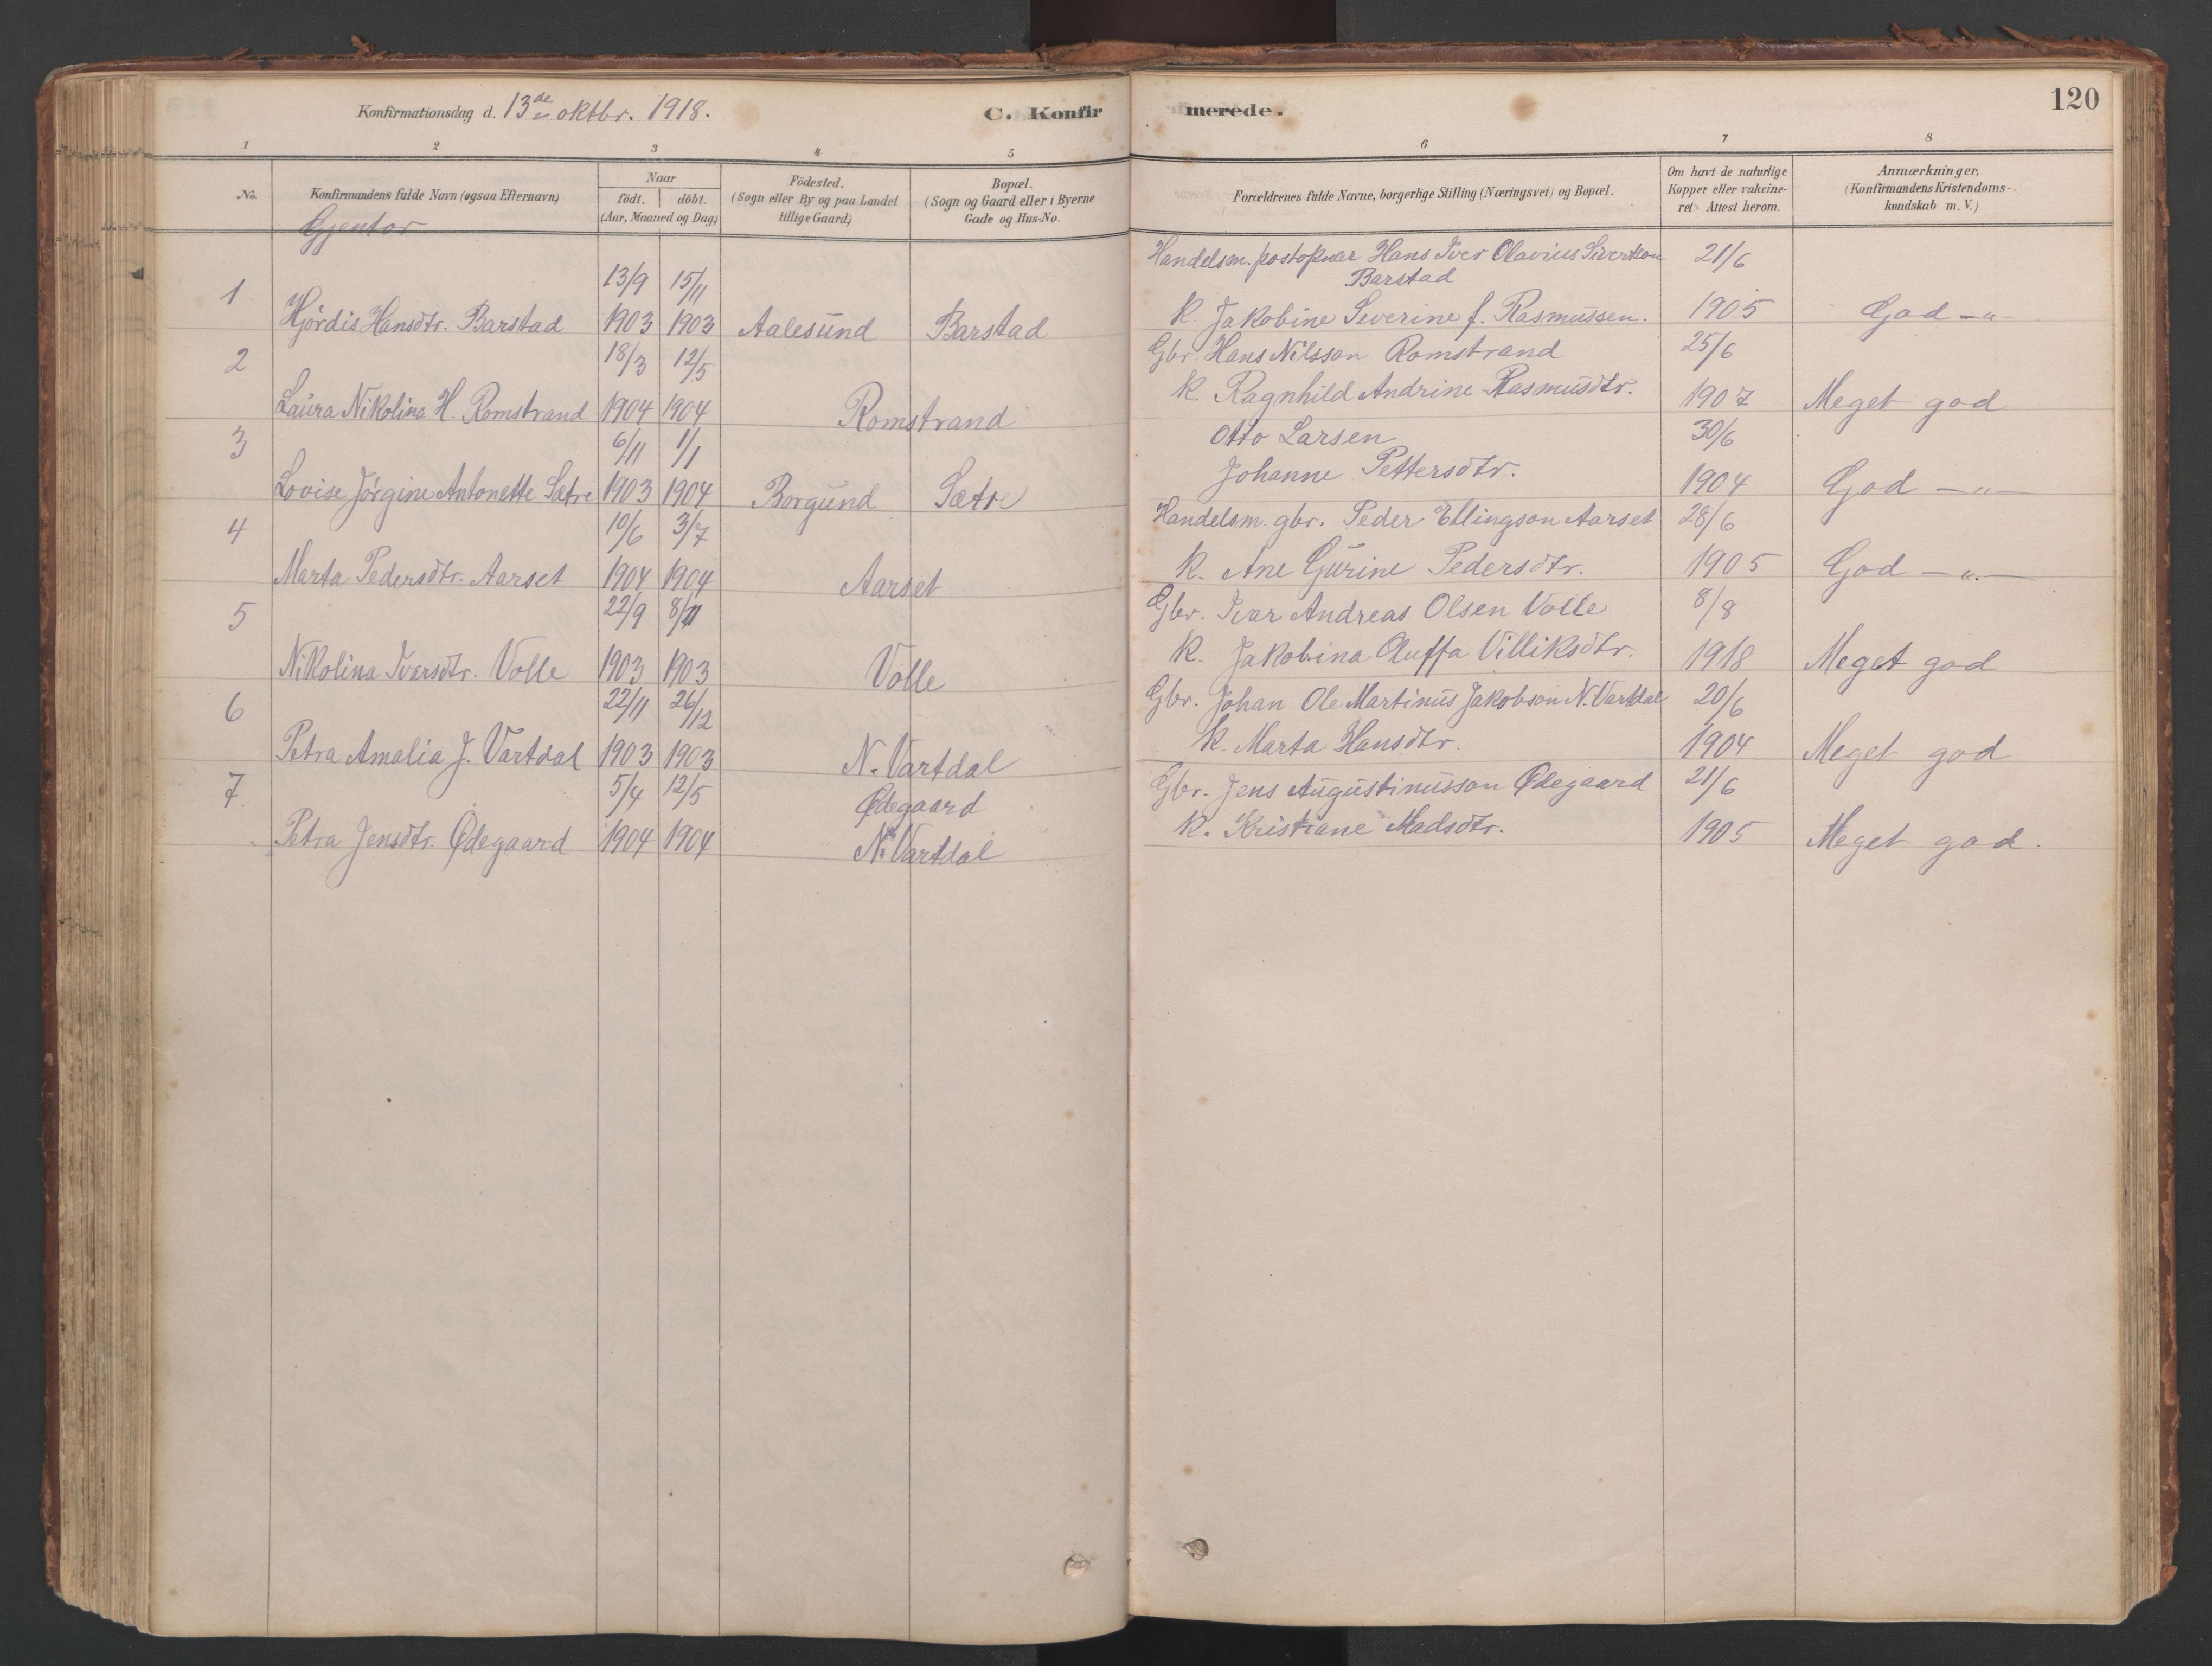 Konfirmationsdag d. 13de oktbr. 1918.
C. Konfirmerede.
120
1 2 3 4 5 6 7 8
No.
Konfirmandens fulde Navn (ogsaa Efternavn)
Naar
født. døbt.
(Aar, Maaned og Dag)
Födested.
(Sogn eller By og paa Landet
tillige Gaard)
Bopæl.
(Sogn og Gaard eller i Byerne
Gade og Hus-No.
Forældrenes fulde Navne, borgerlige Stilling (Næringsvei) og Bopæl.
Om havt de naturlige
Kopper eller vakcine-
ret Attest herom.
Anmærkninger,
(Konfirmandens Kristendoms-
kundskab m. V.)
Gjentor
Handelsm. Hans Iver Olavius Sivertson 21/6
1 13/9 15/11 Barstad
Hjördis Hansdtr. Barstad 1903 1903 Aalesund Barstad K. Jakobine Severine f. Rasmussen. 1905 God -"-
2 18/3 12/5 Gbr. Hans Nilsson Romstrand 25/6
Laura Nikolina H. Romstrand 1904 1904 Romstrand K. Ragnhild Andrine Rasmusdtr. 1907 Meget god
3 6/11 1/1 Otto Larsen 30/6
Lovise Jörgine Antonette Sætre 1903 1904 Borgund Sætre Johanne Pettersdtr. 1904 God -"-
4 10/6 3/7 Handelsm. gbr. Peder Ellingson Aarset 28/6
Marta Pedersdtr. Aarset 1904 1904 Aarset K. Ane Gurine Pedersdtr. 1905 God -"-
5 22/9 8/11 Gbr. Ivar Andreas Olsen Volle 8/8
Nikolina Ivarsdtr. Volle 1903 1903 Volle K. Jakobina Oluffa Villiksdtr. 1918 Meget god
6 22/11 26/12 Gbr. Johan Ole Martinus Jakobson N. Vartdal 20/6
Petra Amalia J. Vartdal 1903 1903 N. Vartdal K. Marta Hansdtr. 1904 Meget god
7. 5/4 12/5 Ødegaard Gbr. Jens Augustinusson Ødegaard 21/6
Petra Jensdtr. Ødegaard 1904 1904 N. Vartdal K. Kristiane Madsdtr. 1905 Meget god.